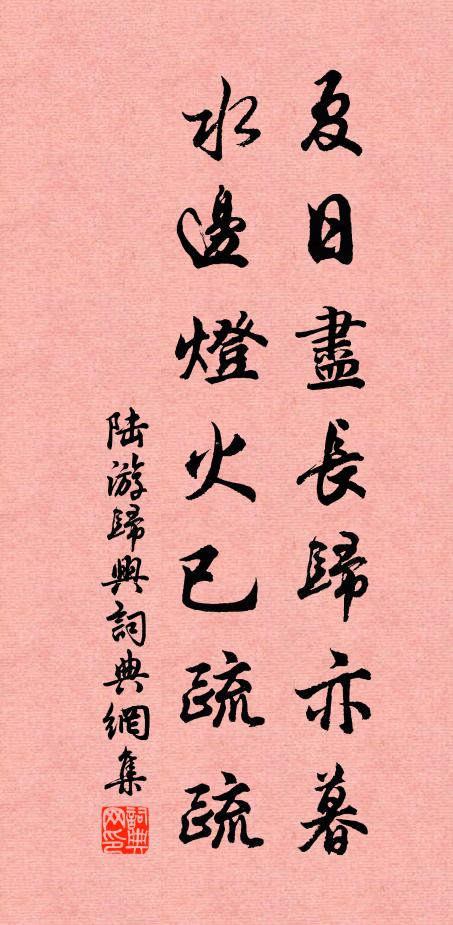 夏日盡長歸亦暮
水邊燈火已疏疏
陸游歸興詞典網集
詞典网印